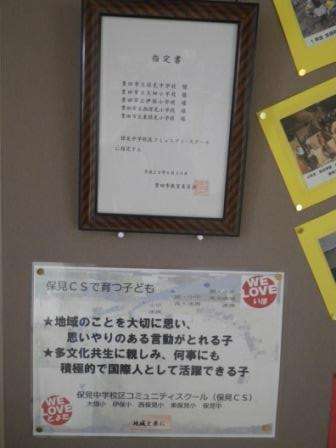 指定書
豊田市立保見中学校 様
豊田市立大畑小学校 様
豊田市立伊保小学校 様
豊田市立西保見小学校 様
豊田市立東保見小学校 様
保見中学校区コミュニティ・スクール
に指定する
豊田市教育委員会
保見CSで育つ子ども
WE LOVE
いほ
★地域のことを大切に思い、
思いやりのある言動がとれる子
★多文化共生に親しみ、何事にも
積極的で国際人として活躍できる子
保見中学校区コミュニティスクール(保見CS)
大畑小 伊保小 西保見小 東保見小 保見中
WE LOVE
とよた
地域と共に